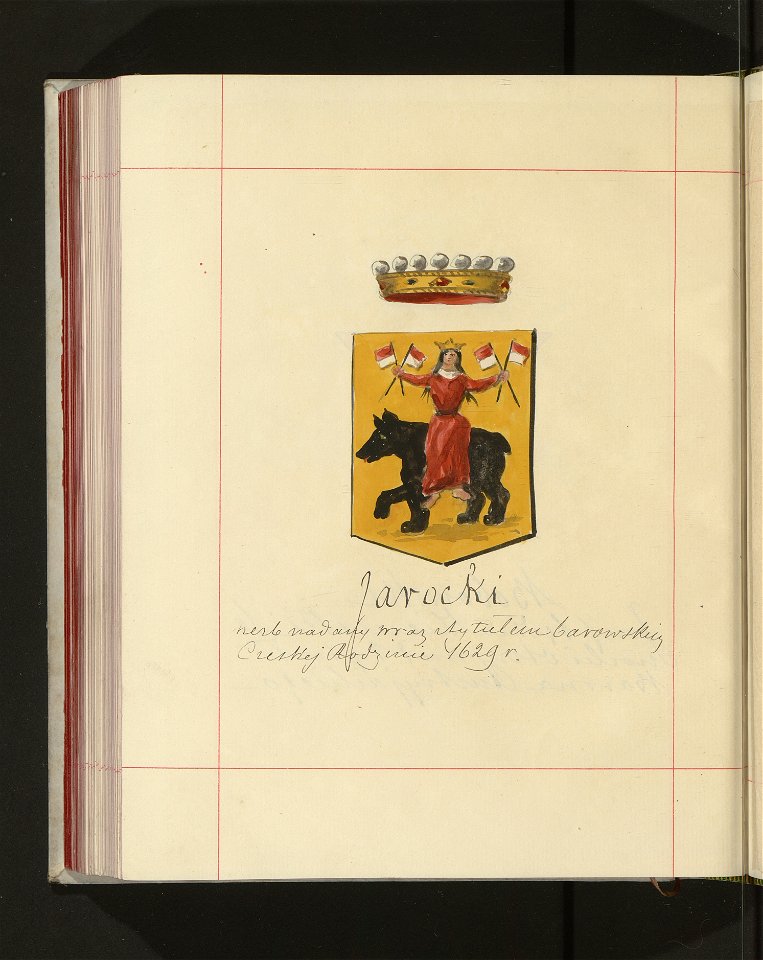 Jarocki
herb nadany wraz z tytułem barowskim
Czeskej Rodzinie 1629 r.